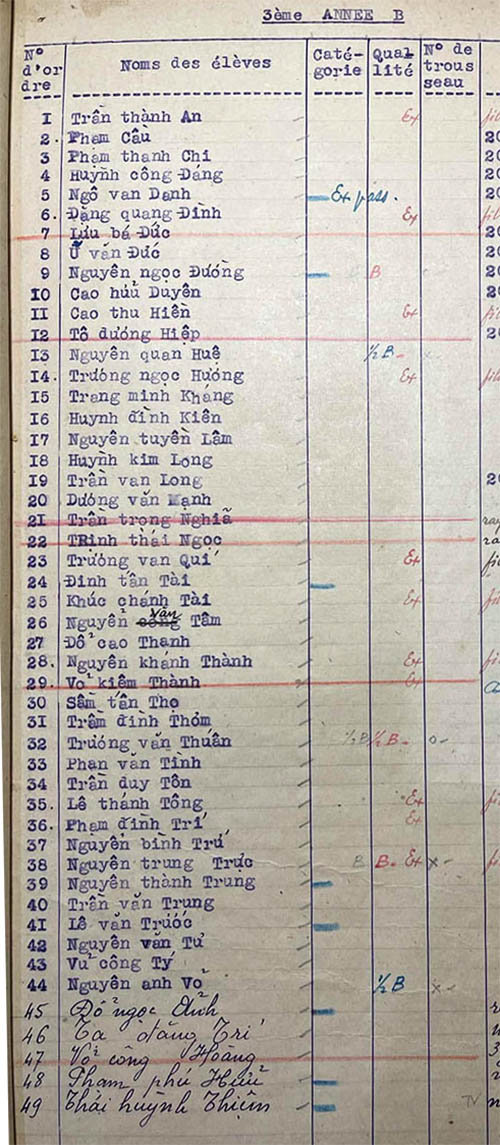 3ème ANNEE B
N° d'or dre Noms des élèves Caté- gorie Qual lité N° de trous seau
1 Trần thành An Ex fi
2. Phạm Cầu 20
3 Phạm thanh Chi 20
4 Huỳnh công Đáng 20
5 Ngô van Danh Ex pass. 20
6. Đặng quang Đình Ex fi
7 Lưu bá Đức 20
8 Ũ văn Đức 20
9 Nguyễn ngọc Đường B 20
10 Cao hửu Duyên 20
11 Cao thu Hiền Ex fi
12 Tô dương Hiệp 20
13 Nguyễn quan Huệ ½ B - x -
14. Trương ngọc Hương Ex fi
15 Trang minh Kháng
16 Huynh đình Kiên
17 Nguyễn tuyển Lâm
18 Huỳnh kim Long
19 Trần van Long 20
20 Dương văn Mạnh
21 Trần trọng Nghiã
22 TRịnh thái Ngọc
23 Trương van Quí Ex
24 Đinh tấn Tài
25 Khúc chánh Tài Ex
26 Nguyễn công Văn Tâm
27 Đổ cao Thanh
28. Nguyễn khánh Thành Ex
29. Vỏ kiêm Thành Ex
30 Sầm tấn Thọ
31 Trầm đinh Thỏm
32 Trương văn Thuấn ½ B ½ B - o -
33 Phan văn Tình
34 Trần duy Tôn
35. Lê thánh Tông Ex
36. Phạm đình Trí Ex
37 Nguyễn bình Trứ
38 Nguyễn trung Trực B B - Ex x -
39 Nguyễn thành Trung
40 Trần văn Trung
41 Lê văn Trước
42 Nguyễn văn Tư
43 Vử công Tý
44 Nguyễn anh Vỏ ½ B x -
45 Đổ ngọc Ảnh
46 Tạ đăng Trí
47 Vỏ công Hoàng
48 Phạm phú Hửu
49 Thái huỳnh Thiệm TV